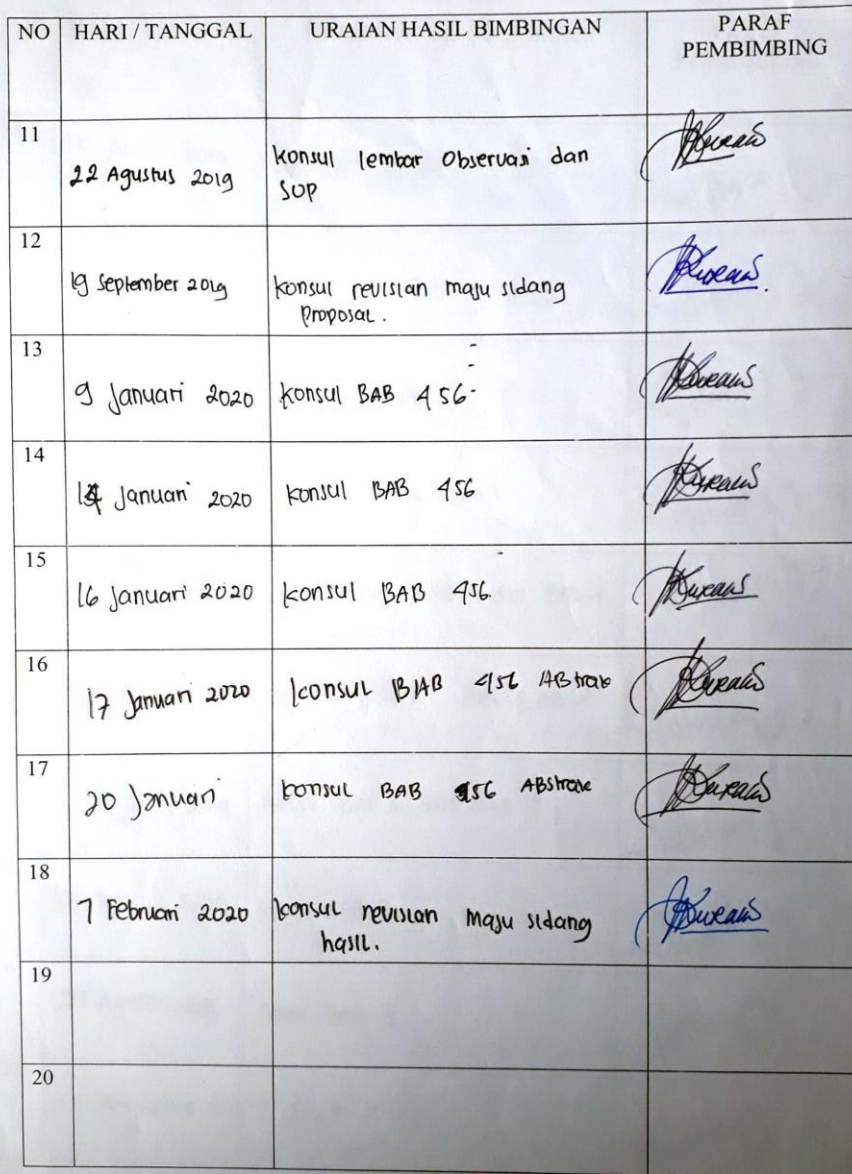 NO HARI / TANGGAL URAIAN HASIL BIMBINGAN PARAF
PEMBIMBING
11
22 Agustus 2019 konsul lembar Observasi dan
SOP
12
19 September 2019 konsul revisian maju sidang
proposal.
13
9 Januari 2020 konsul BAB 456
14
Januari 2020 konsul BAB 456
15
16 Januari 2020 konsul BAB 456
16
17 Januari 2020 konsul BAB 456 ABstrak
17
20 Januari konsul BAB 456 ABstrak
18
7 Februari 2020 konsul revisian maju sidang
hasil.
19
20